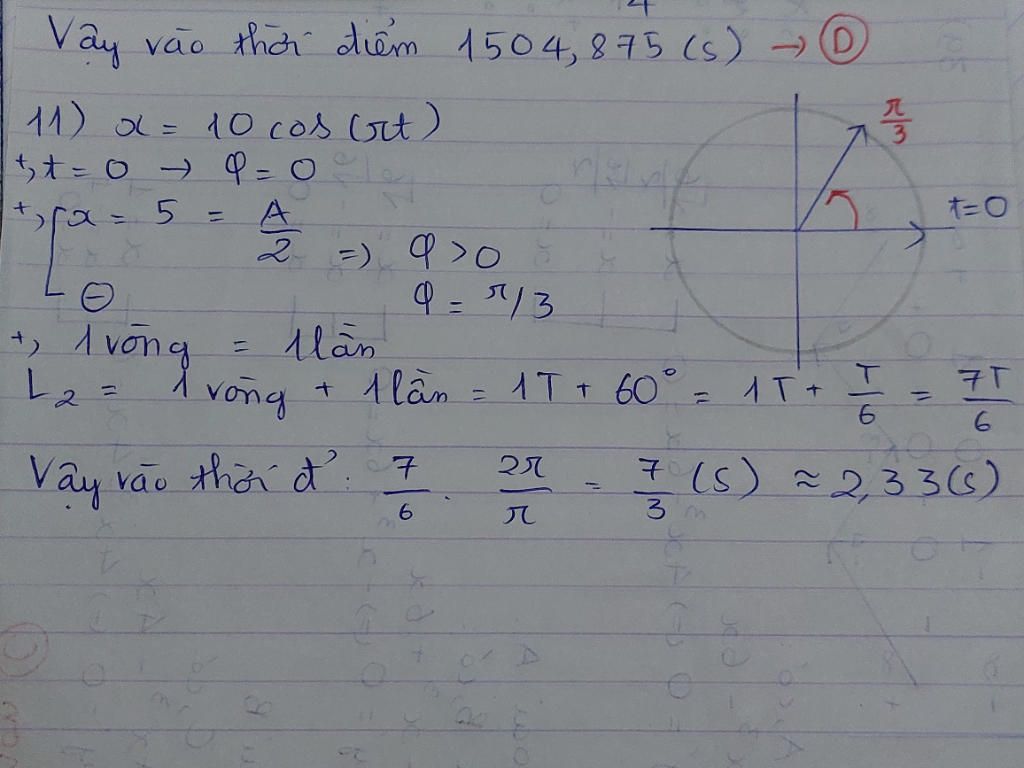 4
Vậy vào thời điểm 1504,875 (s) → D
11) x = 10 cos (πt)
+, t = 0 → φ = 0
+, [ x = 5 = A/2 => φ > 0
⊖ φ = π/3
π/3
t=0
+, 1 vòng = 1 lần
L2 = 1 vòng + 1 lần = 1T + 60° = 1T + T/6 = 7T/6
Vậy vào thời đ' : 7/6 . 2π/π = 7/3 (s) ≈ 2,33 (s)